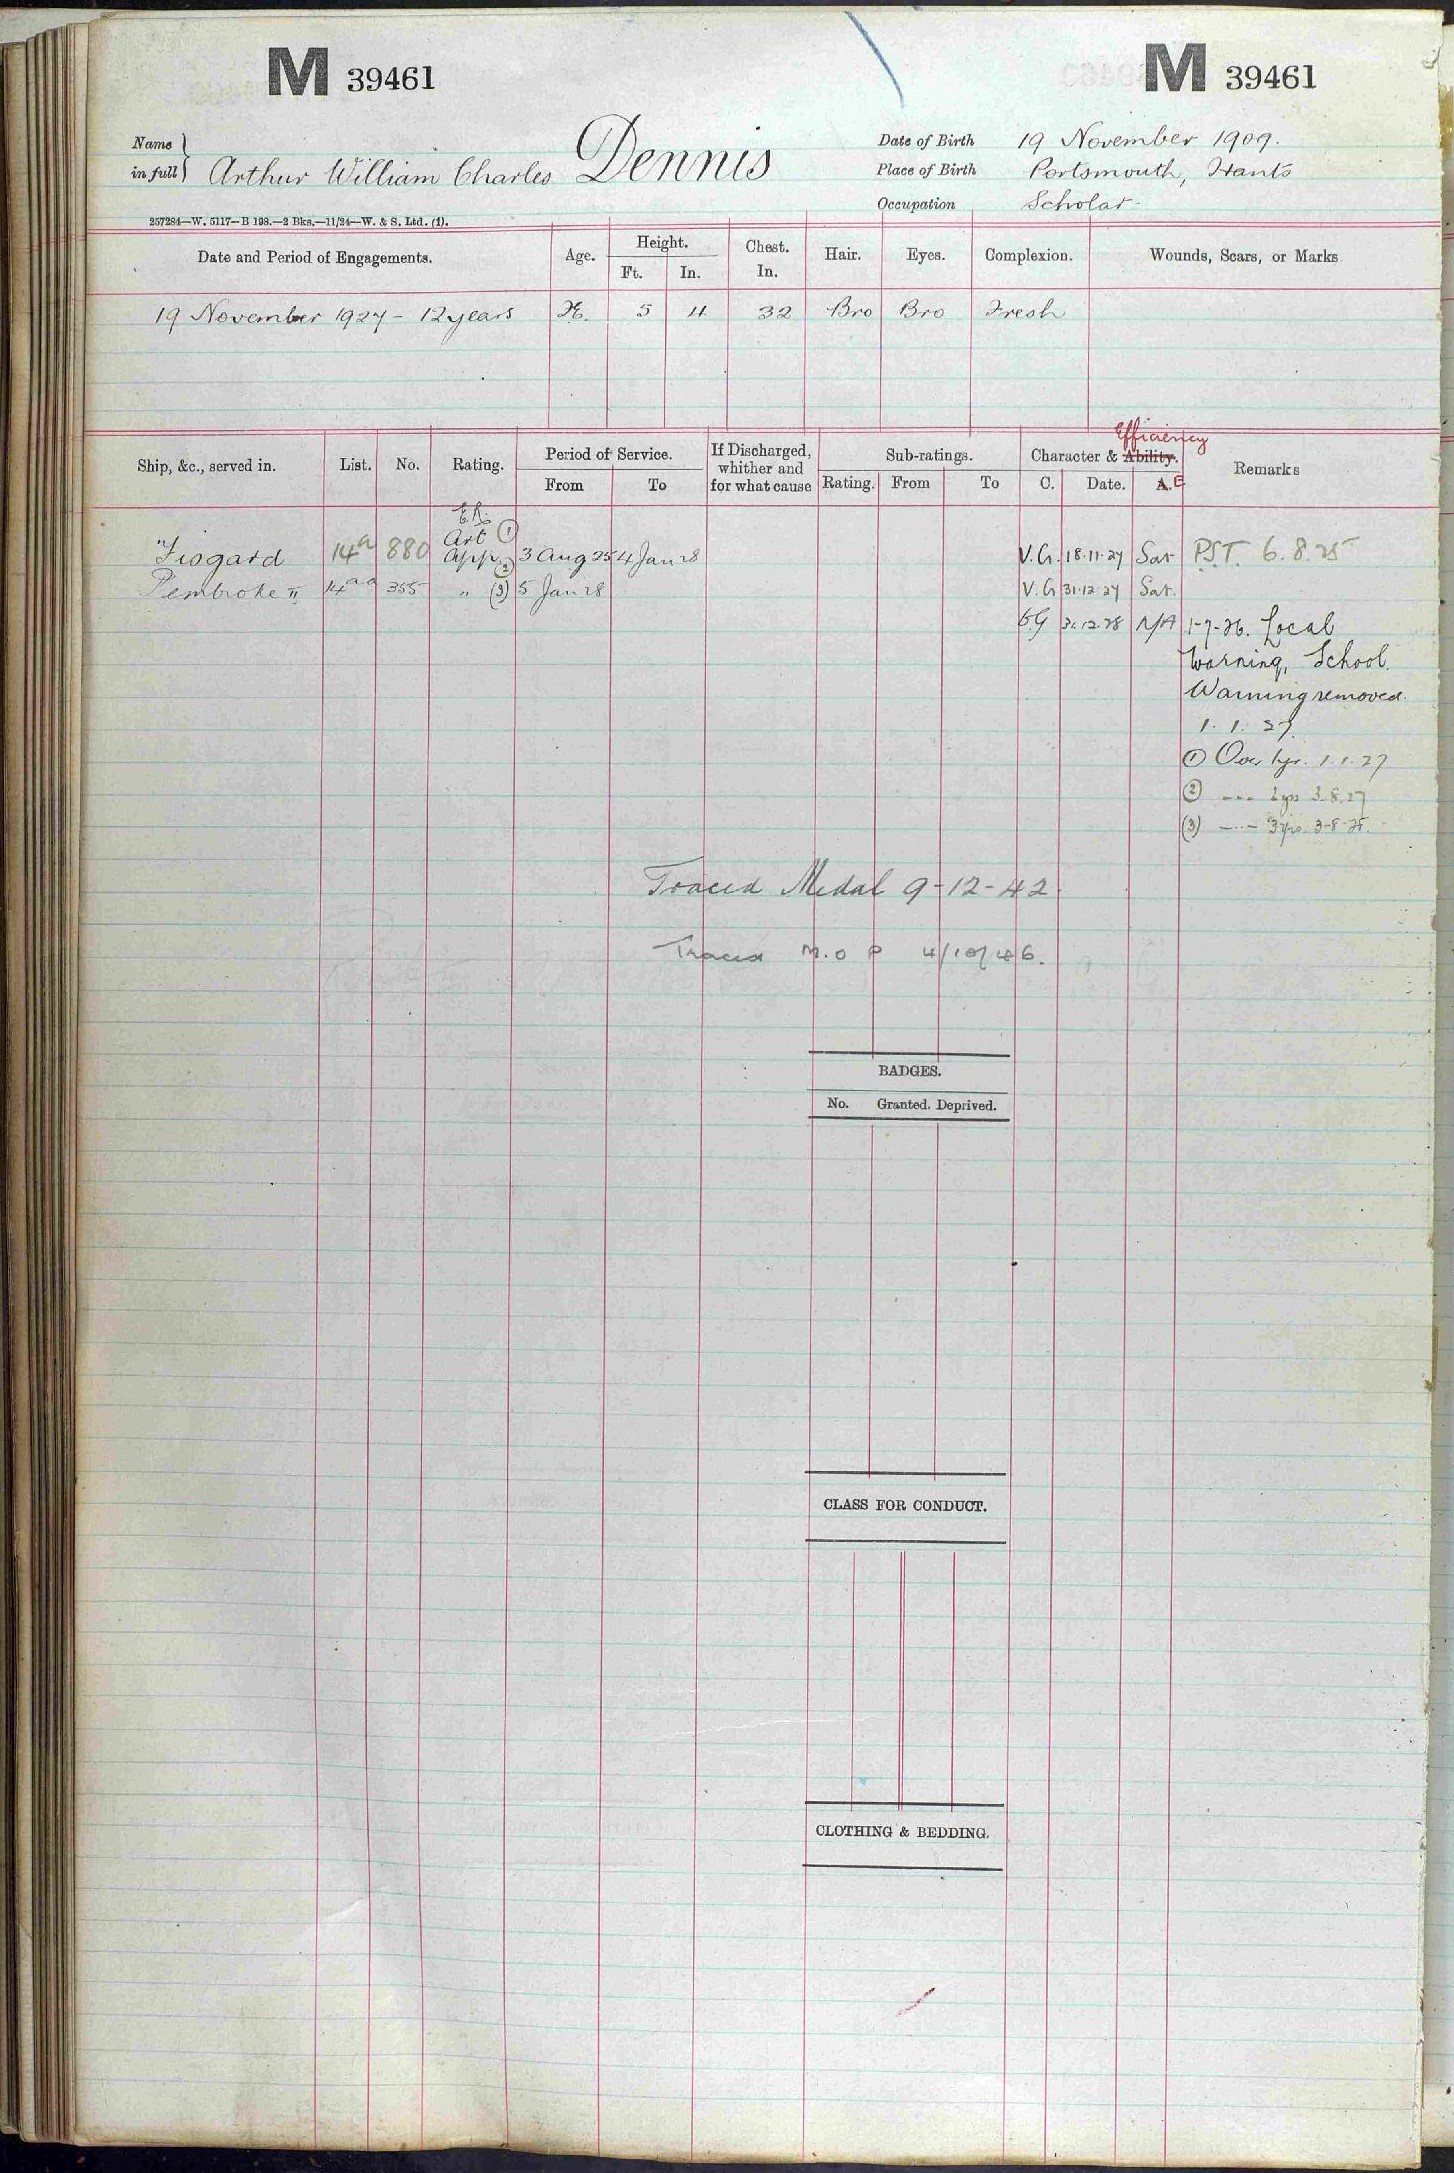 M 39461 M 39461
Name in full } Arthur William Charles Dennis
Date of Birth 19 November 1909.
Place of Birth Portsmouth, Hants
Occupation Scholar
257284—W. 5117—B 198.—2 Bks.—11/24—W. & S. Ltd. (1).
Date and Period of Engagements. Age. Height. Ft. In. Chest. In. Hair. Eyes. Complexion. Wounds, Scars, or Marks
19 November 1927 - 12 years 5 4 32 Bro Bro Fresh
Efficiency
Ship, &c., served in. List. No. Rating. Period of Service. From To If Discharged, whither and for what cause Sub-ratings. Rating. From To Character & Ability. C. Date. A. E Remarks
E.R.
Art ①
Fisgard 14a 880 App. ② 3 Aug 25 4 Jan 28 V.G. 18.11.27 Sat P.S.T. 6.8.25
Pembroke II 14aa 355 " (3) 5 Jan 28 V.G 31.12.27 Sat.
VG 31.12.28 N/A 1-7-26. Local
Warning, School.
Warning removed.
1. 1. 27.
① Over 1yr. 1.1.27
② --- 2yrs 3.8.27
(3) -··- 3yrs. 3-8-28.
Traced Medal 9-12-42.
Traced M.O P 4/10/46.
BADGES.
No. Granted. Deprived.
CLASS FOR CONDUCT.
CLOTHING & BEDDING.